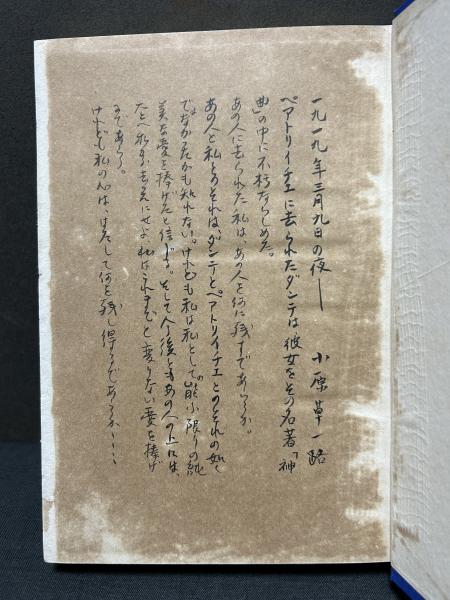 一九一九年三月九日の夜── 小原草一路
ベアトリイチエに去られたダンテは彼女をその名著「神
曲」の中に不朽ならしめた。
あの人に去られた私は、あの人を何に残すであらうか。
あの人と私とのそれは、ダンテとベアトリイチエとのそれの如く
でなかつたかも知れない。けれども私は私として能ふ限りの純
美な愛を捧げたと信ずる。そして今後ともあの人の上には、
たとへ にせよ私はこれまでと変りない愛を捧げ
るであらう。
けれども私の心は、はたして何を残し得るであらうか……